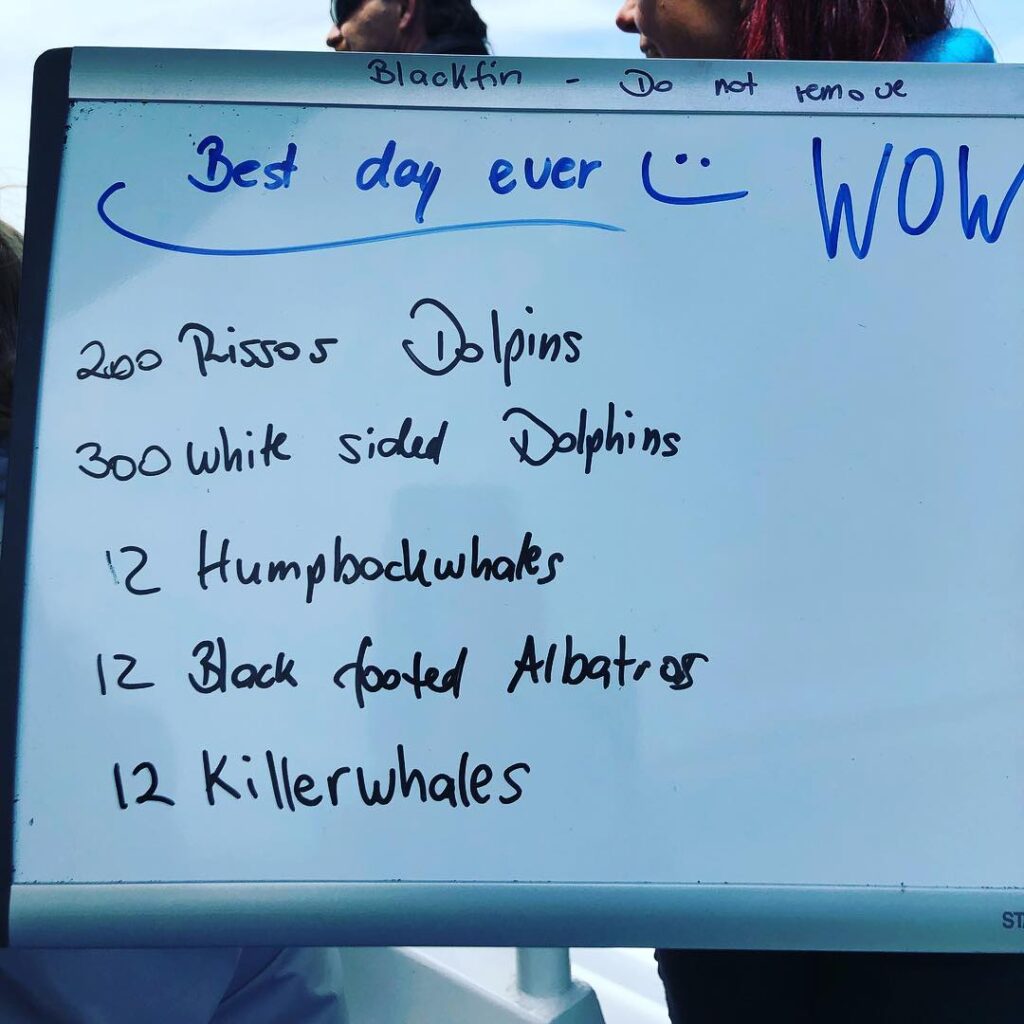 Blackfin - Do not remove
Best day ever WOW
200 Rissos Dolpins
300 White sided Dolphins
12 Humpbackwhales
12 Black footed Albatros
12 Killerwhales